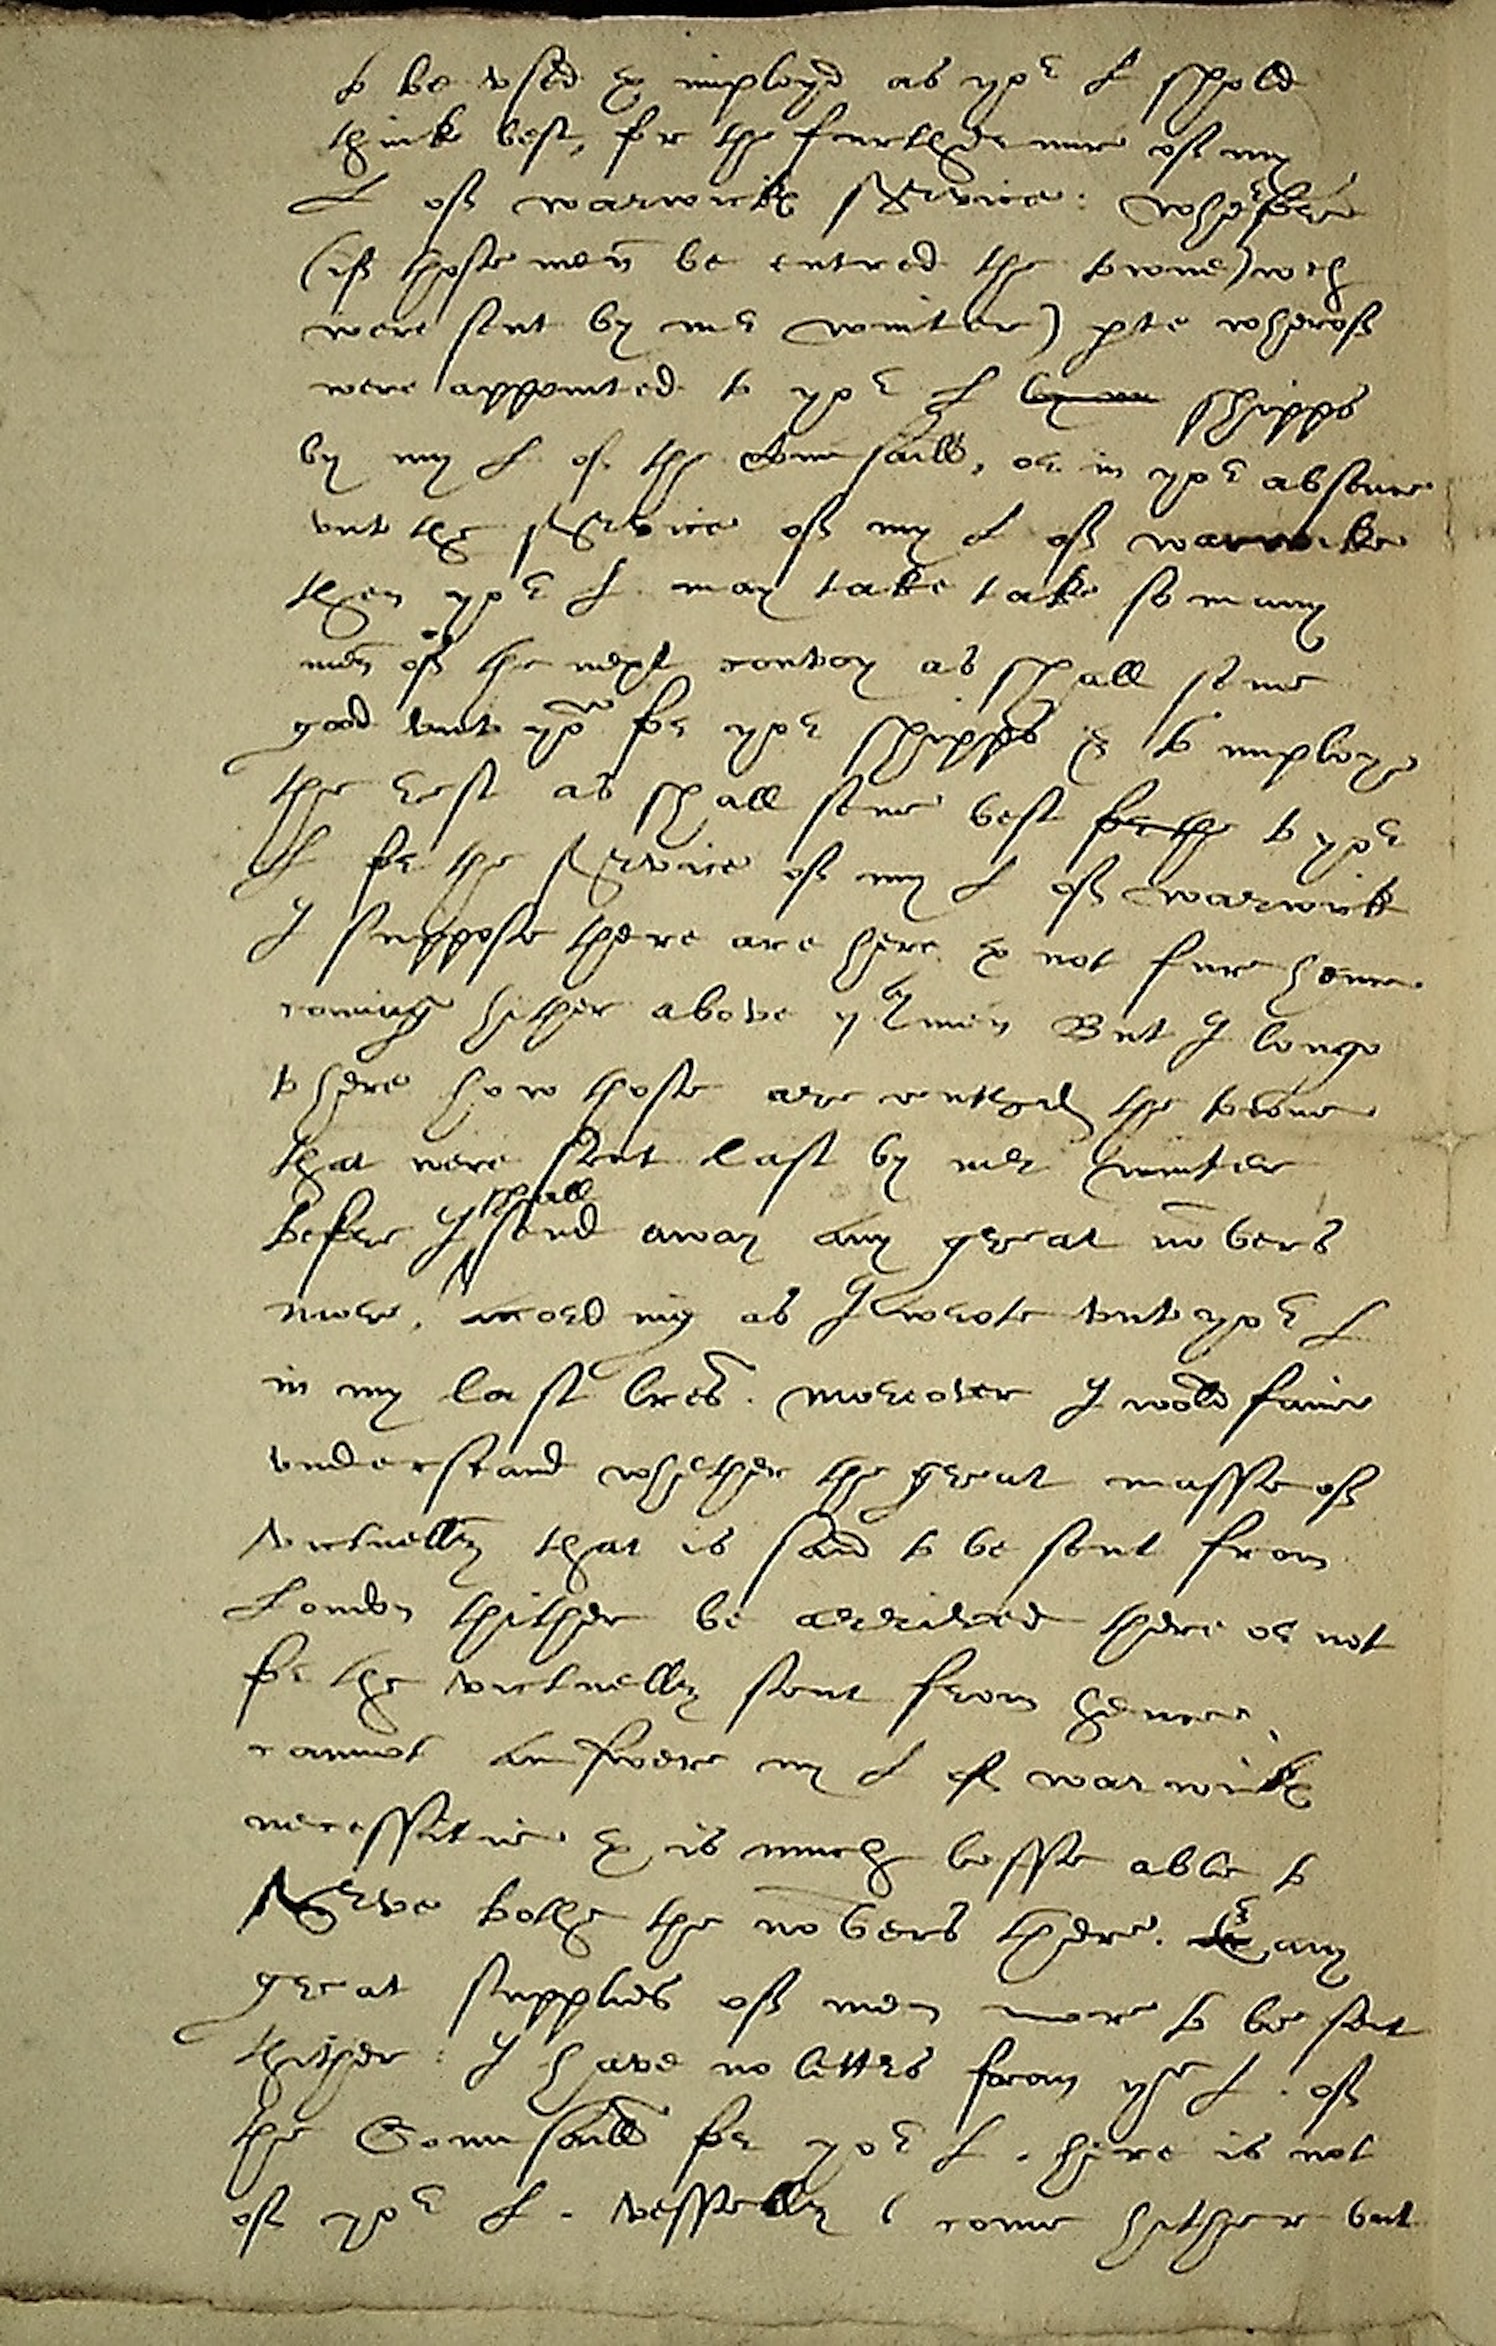 to be vsed & imployd as yor L shold
think best, for the furtherance of my
L of warwick service: wherfore
(if those men be entred the towne) wch
were sent by mr winter) pte wherof
were appointed to yor L by m shipps
by my L of the Counsaill, or in yor absence
vnto the service of my L of warwicke
then yor L may take take so many
men of the next convoy as shall seme
good vnto yow for yor shipps & to imploye
the rest as shall seme best for the to yor
L for the service of my L of warwick
I suppose there are here & not fur hence
coming hither above men But I longe
to here how those are entred the towne
that were sent last by mr winter
before I shall send away any great nobers
more, according as I wrote vnto yor L
in my last lres. moreover I wold faine
vnderstand whether the great masse of
victuelles that is said to be sent from
London thither be arrived there or not
for the victuelles sent from hence,
cannot answere my L of warwickes
necessitie & is much lesse able to
serve bothe the nobers there. & any
great supplies of men more to be sent
thither: I have no letters from the L. of
the Counsaill for yor L. here is not
of yor L. vesselles come hither but